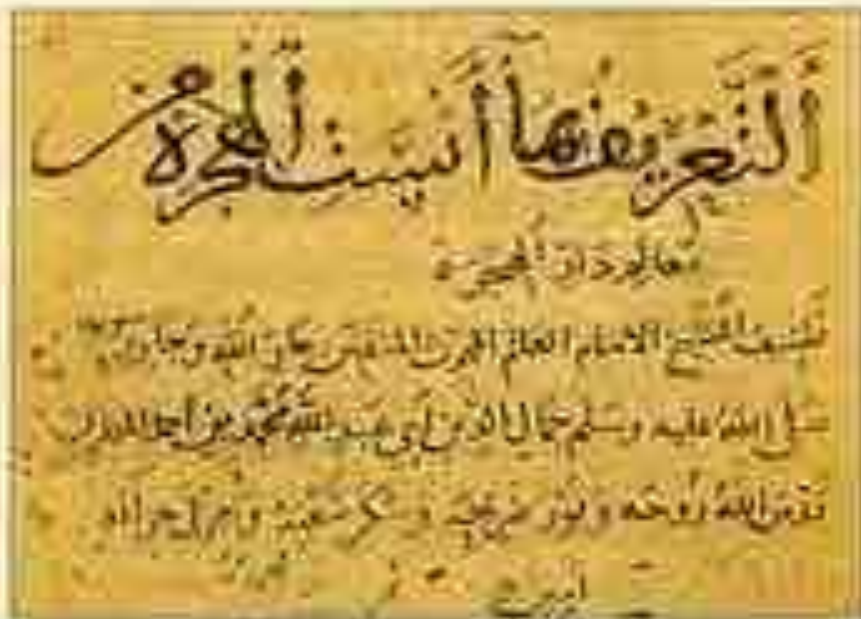 اَلتَّعْرِيفُ بِمَا أَنْسَتِ الْهُجْرَةُ مِنْ
مَعَالِمِ دَارِ الْهِجْرَةِ
تصنيف الشيخ الامام العالم المحدث جار الله وجار
صلى الله عليه وسلم جمال الدين ابي عبد الله محمد بن احمد المطري
قدس الله روحه ونور ضريحه وشكر سعيه
امين